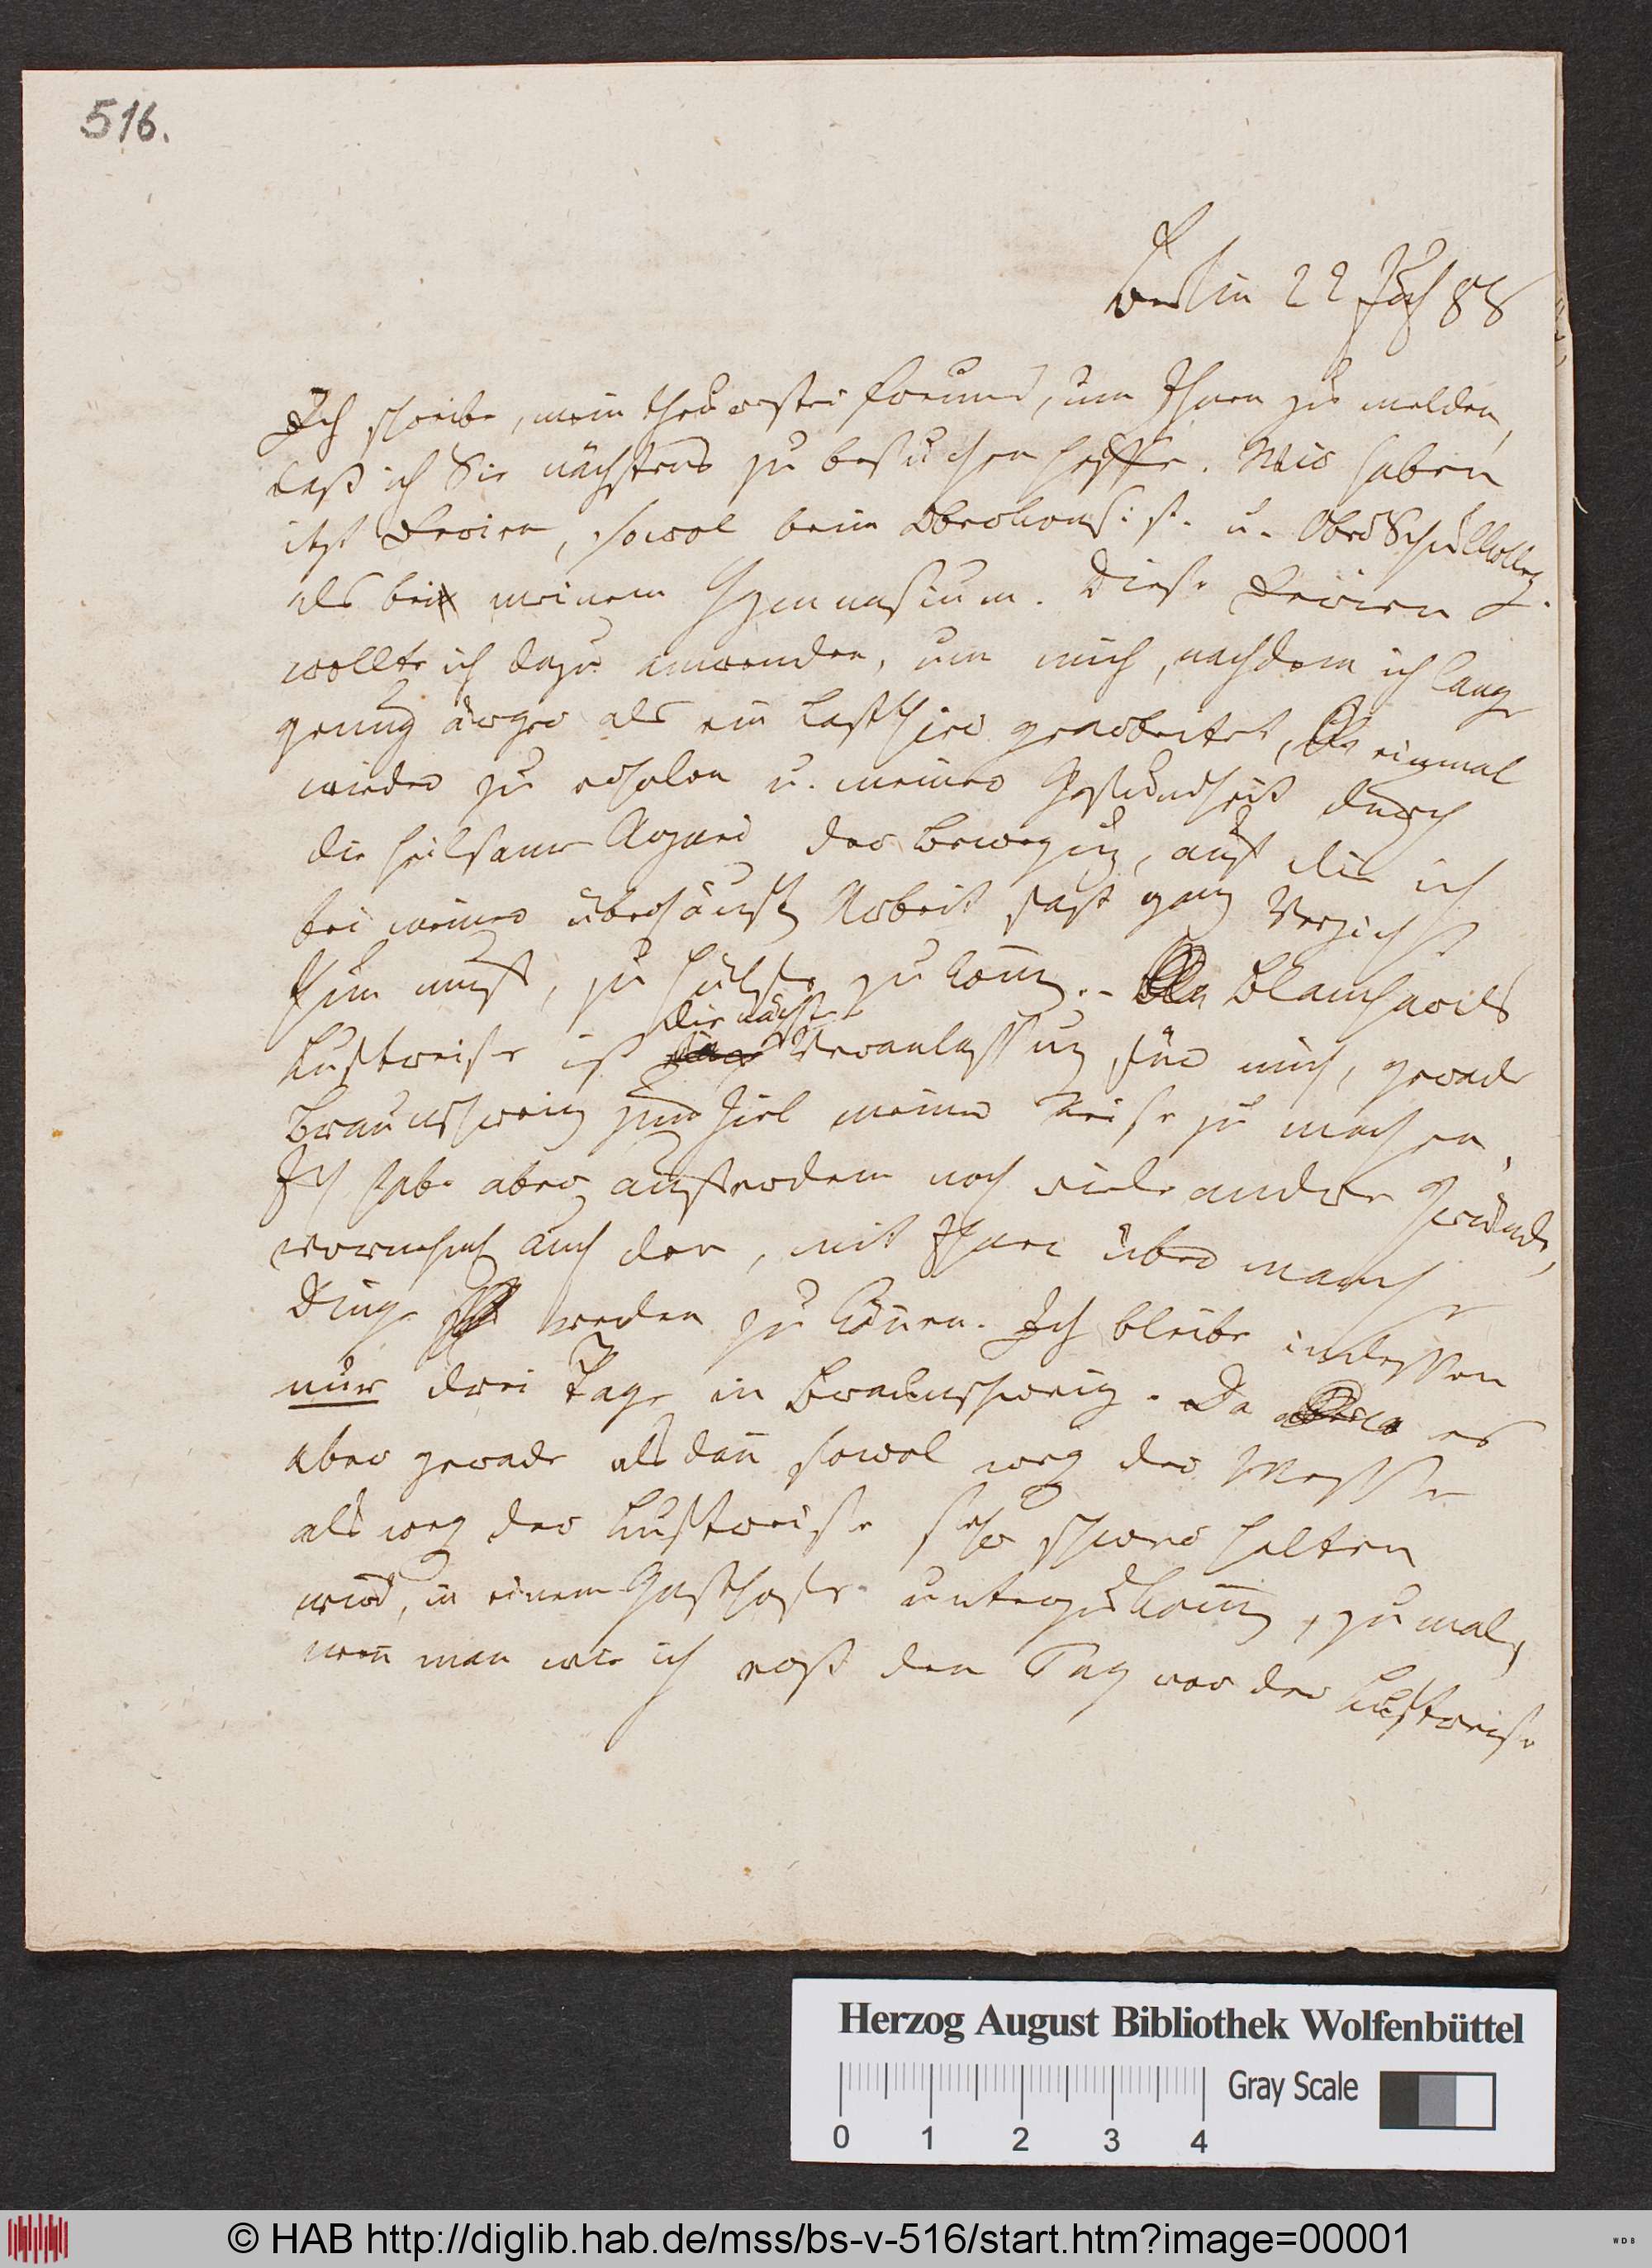 516.
Berlin 22 Jul 88
Ich schreibe, mein theuerster Freund, um Ihnen zu melden,
daß ich Sie nächstens zu besuchen hoffe. Wir haben
itzt Ferien, sowol beim Oberkons: ist. u. OberSchulkolleg.
als bei meinem Gymnasium. Diese Ferien
wollte ich dazu anwenden, um mich, nachdem ich lang
genug ärger als ein Lastthier gearbeitet, einmal
wieder zu erholen u. meiner Gesundheit durch
die heilsame Arznei der Bewegung, auf die ich
bei meiner überhäuften Arbeit fast ganz Verzicht
thun muß, zu Hülfe zu kom̄en. – Blanchards
die nächste
Luftreise ist Veranlassung für mich, gerade
Braunschweig zum Ziel meiner Reise zu machen.
Ich habe aber außerdem noch viele andre Gründe,
vornehml. auch den, mit Ihnen über manche
Dinge reden zu kön̄en. Ich bleibe indessen
nur drei Tage in Braunschweig. Da es
aber gerade alsdan̄ sowol weg. der Messe
als weg. der Luftreise sehr schwer halten
wird, in einem Gasthofe unterzukom̄en, zumal,
wen̄ man wie ich erst den Tag vor der Luftreise
Herzog August Bibliothek Wolfenbüttel
Gray Scale
0 1 2 3 4
© HAB http://diglib.hab.de/mss/bs-v-516/start.htm?image=00001
WDB